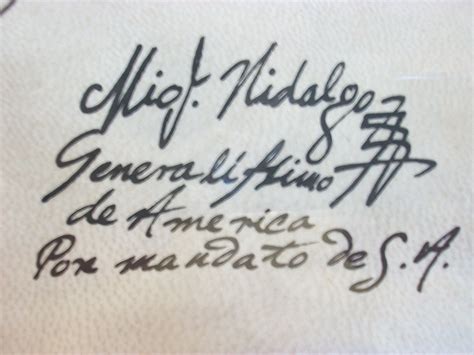 Migl. Hidalgo
Generalísimo
de America
Por mandato de S. A.